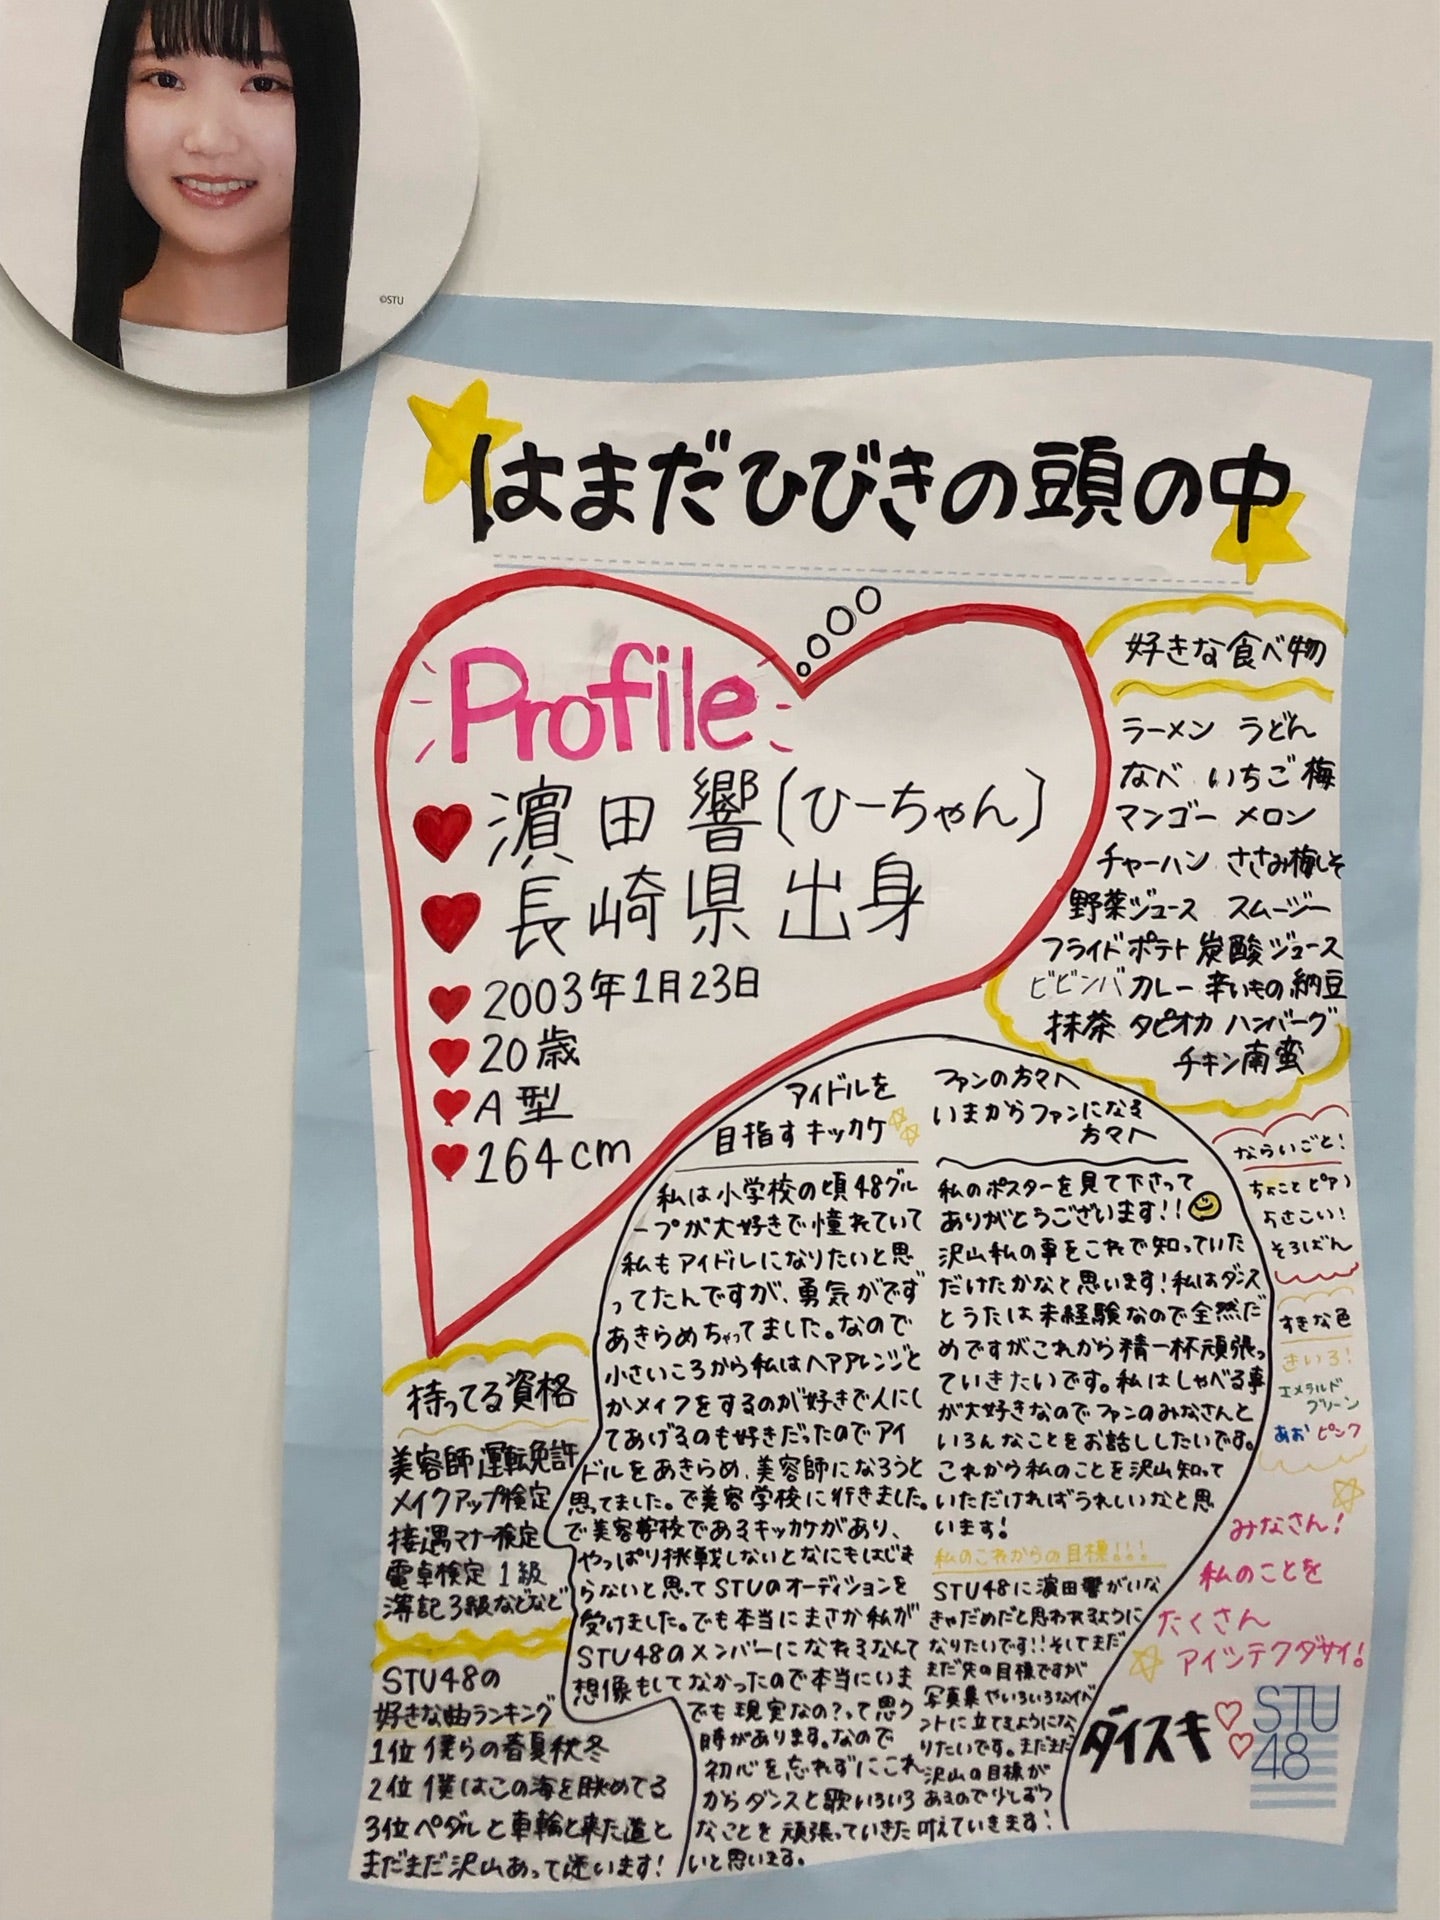 ©STU
はまだひびきの頭の中
Profile
濵田響(ひーちゃん)
長崎県出身
2003年1月23日
20歳
A型
164cm
好きな食べ物
ラーメン うどん
なべ いちご 梅
マンゴー メロン
チャーハン ささみ梅しそ
野菜ジュース スムージー
フライドポテト 炭酸ジュース
ビビンバ カレー 辛いもの 納豆
抹茶 タピオカ ハンバーグ
チキン南蛮
アイドルを
目指すキッカケ
私は小学校の頃48グル
ープが大好きで憧れていて
私もアイドルになりたいと思
ってたんですが、勇気がでず
あきらめちゃってました。なので
小さいころから私はヘアアレンジと
かメイクをするのが好きで人にし
てあげるのも好きだったのでアイ
ドルをあきらめ、美容師になろうと
思ってました。で美容学校に行きました。
で美容学校であるキッカケがあり、
やっぱり挑戦しないとなにもはじま
らないと思ってSTUのオーディションを
受けました。でも本当にまさか私が
STU48のメンバーになれるなんて
想像もしてなかったので本当にいま
でも現実なの?って思う
時があります。なので
初心を忘れずにこれ
からダンスと歌いろいろ
なことを頑張っていきた
いと思います。
ファンの方々へ
いまからファンになる
方々へ
私のポスターを見て下さって
ありがとうございます!!
沢山私の事をこれで知っていた
だけたかなと思います!私はダンス
とうたは未経験なので全然だ
めですがこれから精一杯頑張っ
ていきたいです。私はしゃべる事
が大好きなのでファンのみなさんと
いろんなことをお話ししたいです。
これから私のことを沢山知って
いただければうれしいなと思
います!
私のこれからの目標!!!
STU48に濵田響がいな
きゃだめだと思われるように
なりたいです!!そしてまだ
まだ先の目標ですが
写真集やいろいろなイベ
ントに立てるようにな
りたいです。まだまだ
沢山の目標が
あるので少しずつ
叶えていきます!
ならいごと!
ちょこっとピアノ
よさこい!
そろばん
すきな色
きいろ!
エメラルド
グリーン
あお ピンク
みなさん!
私のことを
たくさん
アイシテクダサイ!
ダイスキ
STU
48
持ってる資格
美容師 運転免許
メイクアップ検定
接遇マナー検定
電卓検定1級
簿記3級などなど
STU48の
好きな曲ランキング
1位 僕らの春夏秋冬
2位 僕はこの海を眺めてる
3位 ペダルと車輪と来た道と
まだまだ沢山あって迷います!